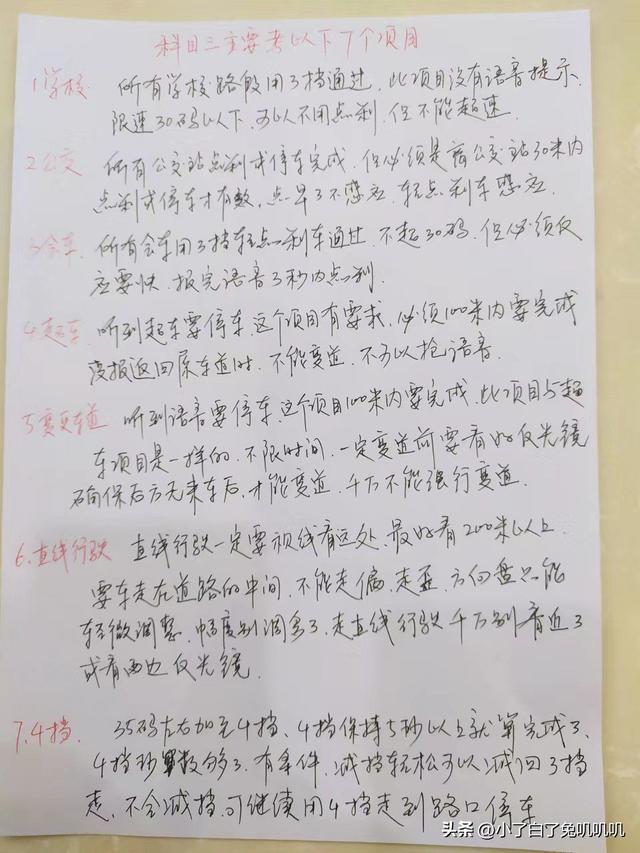 科目三主要考以下7个项目
1学校 所有学校路段用3挡通过,此项目没有语音提示
限速30码以下,可以不用点刹,但不能超速.
2公交 所有公交站点刹或停车完成,但必须是离公交站30米内
点刹或停车才有数,点早了不感应,轻点刹车感应.
3会车. 所有会车用3挡轻点一刹车通过,不超30码,但必须反
应要快.报完语音3秒内点刹.
4超车. 听到超车要停车,这个项目有要求,必须100米内要完成
没报返回原车道时,不能变道,不可以抢语音.
5变更车道 听到语音要停车,这个项目100米内要完成,此项目与超
车项目是一样的,不限时间,一定变道前要看好反光镜
确保后方无来车后,才能变道,千万不能强行变道.
6.直线行驶 直线行驶一定要视线看远处,最好看200米以上
要车走在道路的中间,不能走偏,走歪,方向盘只能
轻微调整,幅度别调多了,走直线行驶千万别看近了
或看两边反光镜.
7.4挡. 35码左右加完4挡,4挡保持5秒以上就算完成了,
4挡秒数够了,有条件,减挡轻松可以减回3挡
走,不会减挡,可继续用4挡走到路口停车
头条 @小了白了兔叽叽叽